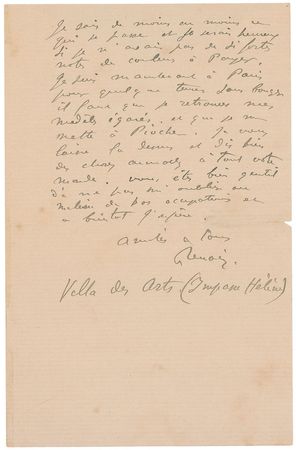 Je sais de moins en moins ce
qui se passe et je serais heureux
si je n'avais pas de si fortes
notes de couleurs à Payer.
Je suis maintenant à Paris
pour quelque temps sans bouger
il faut que je retrouve mes
modèles égarés, et que je me
mette à Piocher. Je vous
laisse la dessus et dis bien
des choses aimables à tout votre
monde. vous êtes bien gentil
de ne pas m'oublier au
milieu de vos occupations et
à bientôt j'espère.
amitiés à tous
Renoir.
Villa des Arts (Impasse Hélène)